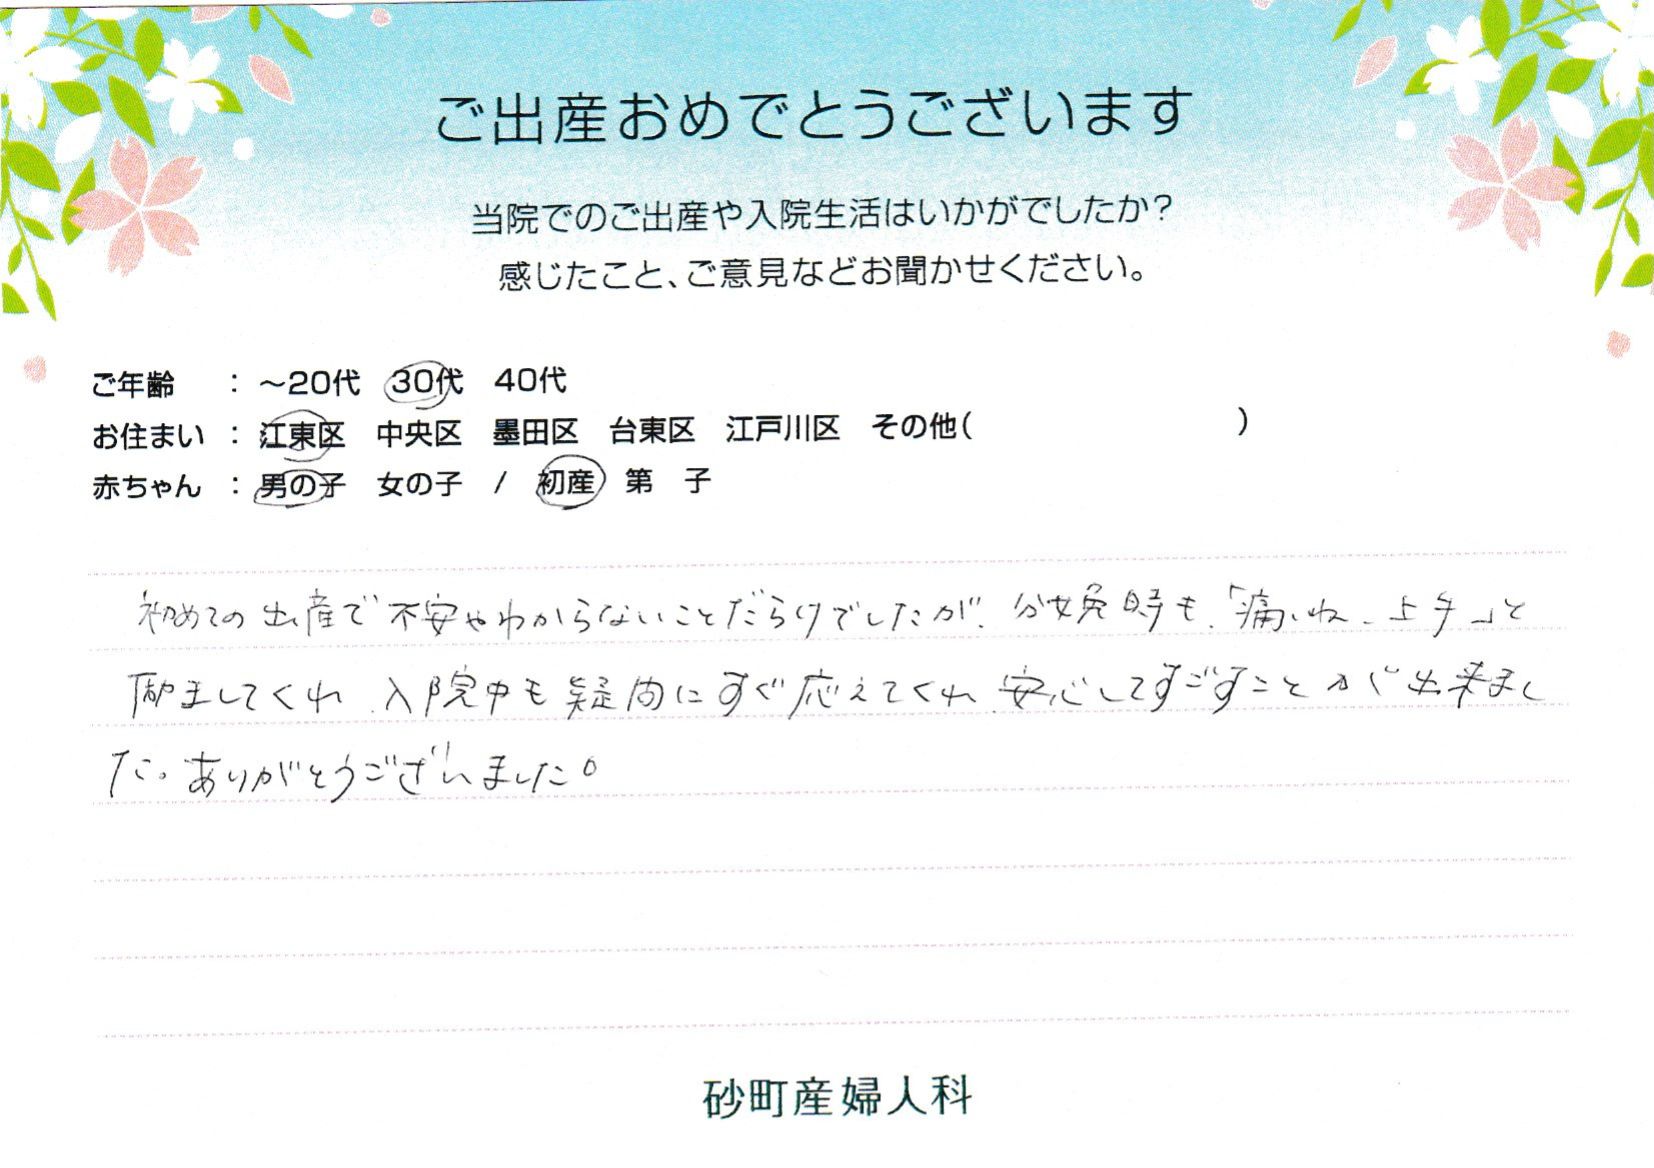 ご出産おめでとうございます
当院でのご出産や入院生活はいかがでしたか?
感じたこと、ご意見などお聞かせください。
ご年齢 : ～20代 30代 40代
お住まい : 江東区 中央区 墨田区 台東区 江戸川区 その他( )
赤ちゃん : 男の子 女の子 / 初産 第 子
初めての出産で不安やわからないことだらけでしたが、分娩時も、「痛いね、上手」と
励ましてくれ、入院中も疑問にすぐ応えてくれ、安心してすごすことが出来まし
た。ありがとうございました。
砂町産婦人科